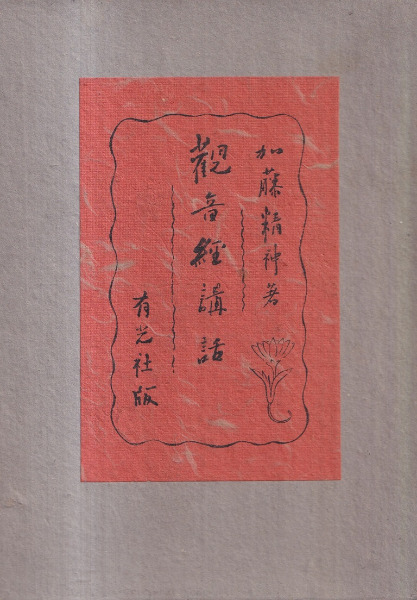 加藤精神著
觀音經講話
有光社版